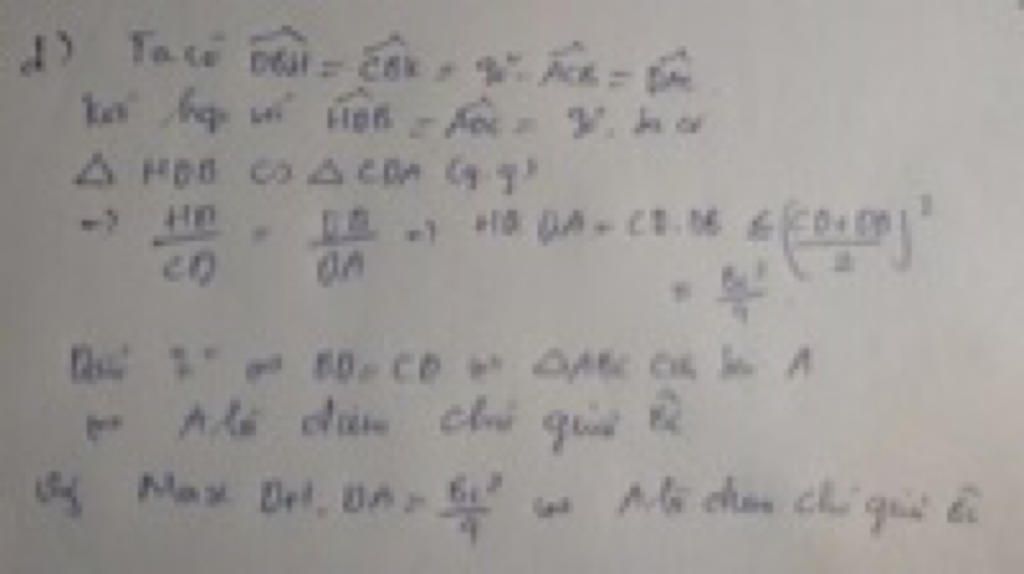 d) Ta có DBH = CBK = 90° - ACB = DAC
Kết hợp với HDB = ADC = 90°, ta có
△ HDB ∽ △ CDA (g.g)
=> HD/CD = DB/DA => HD.DA = CD.DB ≤ ((CD+DB)/2)²
= BC²/4
Dấu "=" <=> BD = CD <=> △ABC cân tại A
<=> A là điểm chính giữa BC
Vậy Max DH.DA = BC²/4 <=> A là điểm chính giữa BC